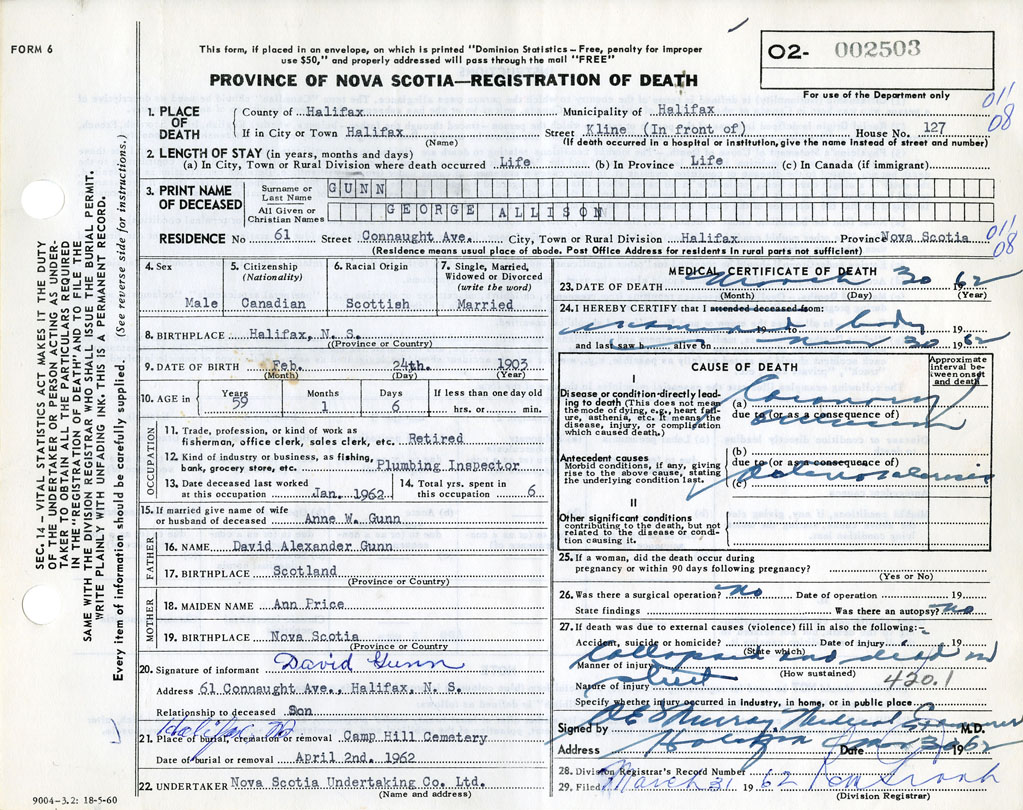 FORM 6
This form, if placed in an envelope, on which is printed "Dominion Statistics – Free, penalty for improper
use $50," and properly addressed will pass through the mail "FREE"
PROVINCE OF NOVA SCOTIA—REGISTRATION OF DEATH
02- 002503
For use of the Department only
01/
08
SEC. 14 – VITAL STATISTICS ACT MAKES IT THE DUTY
OF THE UNDERTAKER OR PERSON ACTING AS UNDER-
TAKER TO OBTAIN ALL THE PARTICULARS REQUIRED
IN THE "REGISTRATION OF DEATH" AND TO FILE THE
SAME WITH THE DIVISION REGISTRAR WHO SHALL ISSUE THE BURIAL PERMIT.
WRITE PLAINLY WITH UNFADING INK. THIS IS A PERMANENT RECORD.
Every item of information should be carefully supplied. (See reverse side for instructions.)
1. PLACE OF DEATH
County of Halifax Municipality of Halifax
If in City or Town Halifax Street Kline (In front of) House No. 127
(Name) (If death occurred in a hospital or institution, give the name instead of street and number)
2. LENGTH OF STAY (in years, months and days)
(a) In City, Town or Rural Division where death occurred Life (b) In Province Life (c) In Canada (if immigrant)
3. PRINT NAME OF DECEASED
Surname or Last Name GUNN
All Given or Christian Names GEORGE ALLISON
RESIDENCE No 61 Street Connaught Ave. City, Town or Rural Division Halifax Province Nova Scotia
01/
08
(Residence means usual place of abode. Post Office Address for residents in rural parts not sufficient)
4. Sex
Male
5. Citizenship (Nationality)
Canadian
6. Racial Origin
Scottish
7. Single, Married, Widowed or Divorced (write the word)
Married
8. BIRTHPLACE Halifax, N. S.
(Province or Country)
9. DATE OF BIRTH Feb. 24th. 1903
(Month) (Day) (Year)
10. AGE in Years 59 Months 1 Days 6 If less than one day old hrs. or min.
OCCUPATION
11. Trade, profession, or kind of work as
fisherman, office clerk, sales clerk, etc. Retired
12. Kind of industry or business, as fishing,
bank, grocery store, etc. Plumbing Inspector
13. Date deceased last worked
at this occupation Jan. 1962
14. Total yrs. spent in
this occupation 6
15. If married give name of wife
or husband of deceased Anne W. Gunn
FATHER
16. NAME David Alexander Gunn
17. BIRTHPLACE Scotland
(Province or Country)
MOTHER
18. MAIDEN NAME Ann Price
19. BIRTHPLACE Nova Scotia
(Province or Country)
20. Signature of informant David Gunn
Address 61 Connaught Ave., Halifax, N. S.
Relationship to deceased Son
Halifax, NS
21. Place of burial, cremation or removal Camp Hill Cemetery
Date of burial or removal April 2nd. 1962
22. UNDERTAKER Nova Scotia Undertaking Co. Ltd.
(Name and address)
9004-3.2: 18-5-60
MEDICAL CERTIFICATE OF DEATH
23. DATE OF DEATH March 30 62
(Month) (Day) (Year)
24. I HEREBY CERTIFY that I attended deceased from:
examined body 19
and last saw h alive on 30 1962
CAUSE OF DEATH
Approximate interval between onset and death
I
Disease or condition directly leading to death (This does not mean the mode of dying, e.g., heart failure, asthenia, etc. It means the disease, injury, or complication which caused death.)
(a) Coronary
due to (or as a consequence of)
occlusion
Antecedent causes
Morbid conditions, if any, giving rise to the above cause, stating the underlying condition last.
(b)
due to (or as a consequence of)
(c) Arteriosclerosis
II
Other significant conditions
contributing to the death, but not related to the disease or condition causing it.
25. If a woman, did the death occur during
pregnancy or within 90 days following pregnancy?
(Yes or No)
26. Was there a surgical operation? No Date of operation 19
State findings Was there an autopsy? No
27. If death was due to external causes (violence) fill in also the following:-
Accident, suicide or homicide? Date of injury 19
(State which)
Collapsed and died on
Manner of injury street
(How sustained)
Nature of injury 420.1
Specify whether injury occurred in industry, in home, or in public place
Signed by Murray Medical Examiner M.D.
Address Halifax Date Mar 30 1962
28. Division Registrar's Record Number
29. Filed March 31 1962
(Division Registrar)